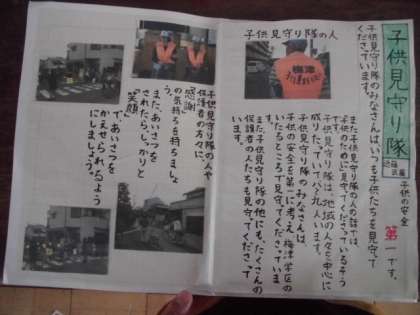 子供見守り隊
子供の安全
第一です。
子供見守り隊のみなさんは、いつも子供たちを見守って
くださっています。
子供見守り隊の人
梅津
また子供見守り隊の人の話では、
子供のために見守ってくださっているそう
子供見守り隊は、地域の人々を中心に
成りたっていて八十九人います。
子供見守り隊のみなさんは、
子供の安全を第一に考え、梅津学区の
いたるところで見守ってくださっていま
す。
また子供見守り隊の他にも、たくさんの
保護者の人たちも見守ってくださって
います。
子供見守り隊の人や
保護者の方々に、
感謝
の気持ちを持ちましょ
う。
また、あいさつを
されたら、しっかりと
笑顔
で、あいさつを
かえせられるよう
にしましょう。